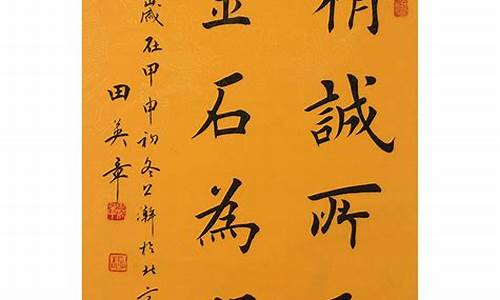 精誠所至
金石為開
歲在甲申初冬澣於北京
田英章